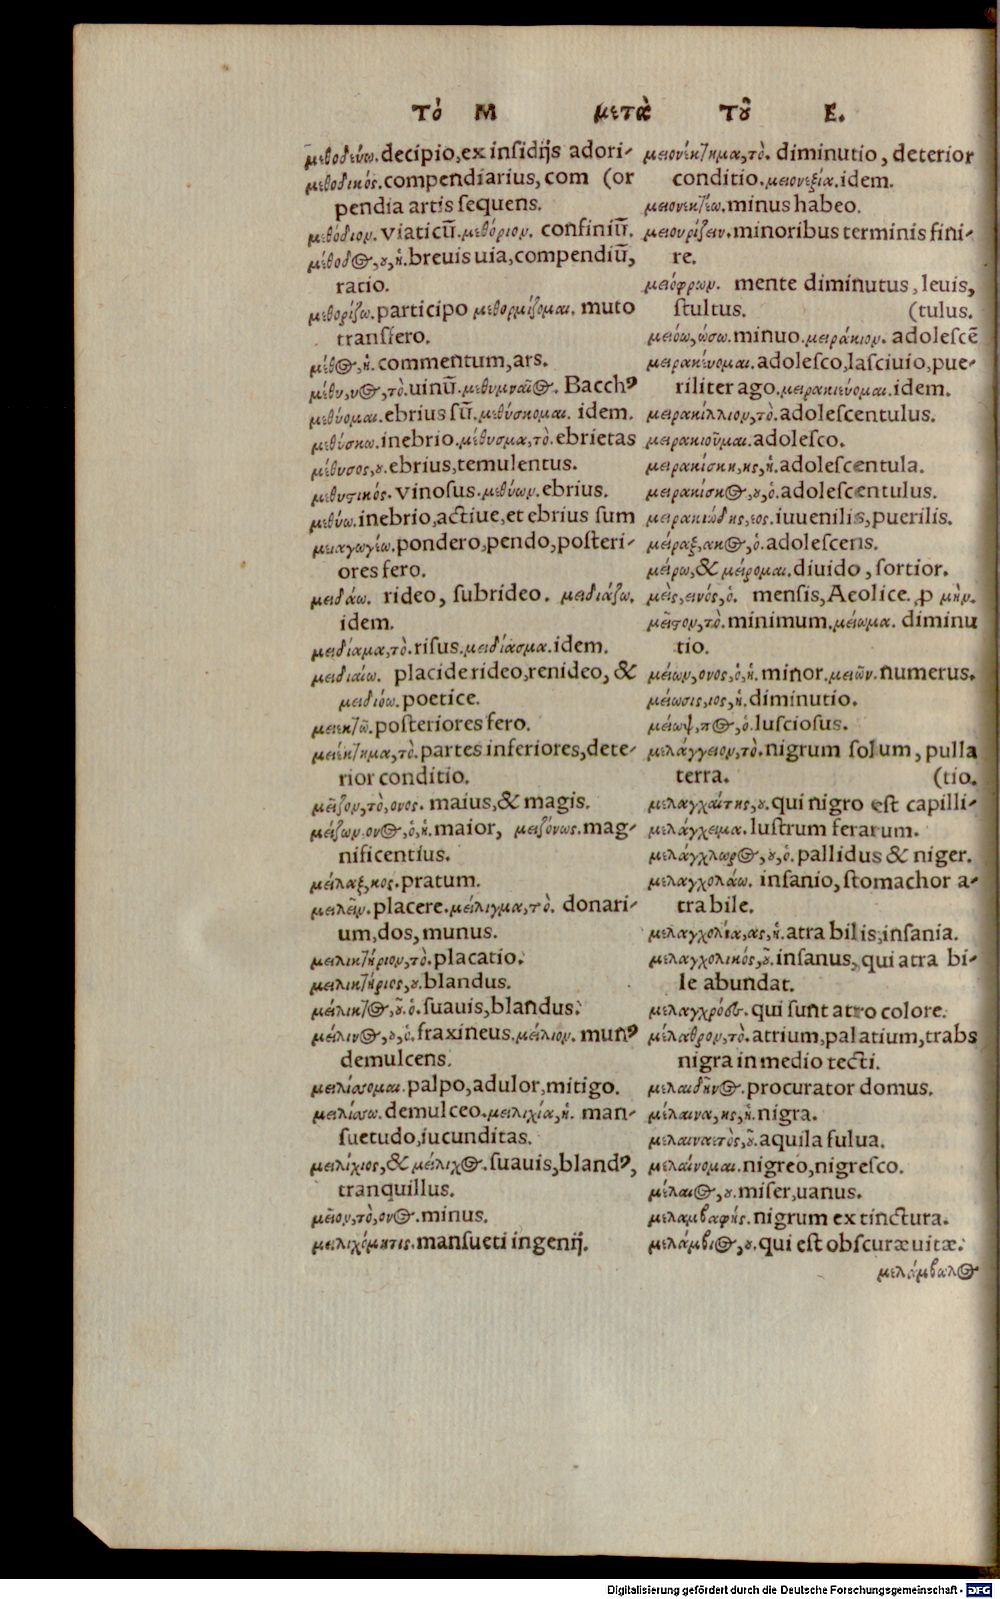 Τὸ Μ μετὰ Τοῦ Ε.
μεθοδεύω. decipio, ex insidijs adori-
μεθοδικός. compendiarius, com (or
pendia artis sequens.
μεθόδιον. viaticū. μεθόριον. confiniū.
μέθοδος, ου, ἡ. breuis uia, compendiū,
ratio.
μεθορίζω. participo μεθορμίζομαι. muto
transfero.
μέθος, ἡ. commentum, ars.
μέθυ, υος, τὸ. uinū. μεθυμναῖος. Bacchꝰ
μεθύομαι. ebrius sū. μεθύσκομαι. idem.
μεθύσκω. inebrio. μέθυσμα, τὸ. ebrietas
μέθυσος, ου. ebrius, temulentus.
μεθυστικός. vinosus. μεθύων. ebrius.
μεθύω. inebrio, actiue, et ebrius sum
μειαγωγέω. pondero, pendo, posteri-
ores fero.
μειδάω. rideo, subrideo. μειδιάζω.
idem.
μειδίαμα, τὸ. risus. μειδίασμα. idem.
μειδιαίω. placide rideo, renideo, &
μειδιόω. poetice.
μειεκτῶ. posteriores fero.
μειέκτημα, τὸ. partes inferiores, dete-
rior conditio.
μεῖζον, τὸ, ονος. maius, & magis.
μείζων. ονος, ὁ, ἡ. maior, μειζόνως. mag-
nificentius.
μεῖλαξ, κος. pratum.
μειλεῖν. placere. μείλιγμα, τὸ. donari-
um, dos, munus.
μειλικτήριον, τὸ. placatio.
μειλικτήριος, ου. blandus.
μείλικτος, ου. ὁ. suauis, blandus.
μείλινος, ου, ὁ. fraxineus. μείλιον. munꝰ
demulcens.
μειλίσσομαι. palpo, adulor, mitigo.
μειλίσσω. demulceo. μειλιχία, ἡ. man-
suetudo, iucunditas.
μειλίχιος, & μείλιχος. suauis, blandꝰ,
tranquillus.
μεῖον, τὸ, ονος. minus.
μειλιχόμητις. mansueti ingenij.
μειονέκτημα, τὸ. diminutio, deterior
conditio. μειονεξία. idem.
μειονεκτέω. minus habeo.
μειουρίζειν. minoribus terminis fini-
re.
μειόφρων. mente diminutus, leuis,
stultus. (tulus.
μειόω, ώσω. minuo. μειράκιον. adolescē
μειρακεύομαι. adolesco, lasciuio, pue-
riliter ago. μειρακιεύομαι. idem.
μειρακίλλιον, τὸ. adolescentulus.
μειρακιοῦμαι. adolesco.
μειρακίσκη, κης, ἡ. adolescentula.
μειρακίσκος, ου, ὁ. adolescentulus.
μειρακιώδης, εος. iuuenilis, puerilis.
μείραξ, ακος, ὁ. adolescens.
μείρω, & μείρομαι. diuido, sortior.
μεὶς, εινός, ὁ. mensis, Aeolice. ꝓ μὴν.
μεῖστον, τὸ. minimum. μείωμα. diminu
tio.
μείων, ονος, ὁ, ἡ. minor. μειῶν. numerus.
μείωσις, εος, ἡ. diminutio.
μείωψ, πος, ὁ. lusciosus.
μελάγγειον, τὸ. nigrum solum, pulla
terra. (tio.
μελαγχαίτης, ου. qui nigro est capilli-
μελάγχειμα. lustrum ferarum.
μελάγχλωρος, ου, ὁ. pallidus & niger.
μελαγχολάω. insanio, stomachor a-
tra bile.
μελαγχολία, ας, ἡ. atra bilis, insania.
μελαγχολικός, οῦ. insanus, qui atra bi-
le abundat.
μελαγχρόες. qui sunt atro colore.
μέλαθρον, τὸ. atrium, palatium, trabs
nigra in medio tecti.
μελαιδῆνος. procurator domus.
μέλαινα, ης, ἡ. nigra.
μελαιναετὸς, οῦ. aquila fulua.
μελαίνομαι. nigreo, nigresco.
μέλαιος, ου. miser, uanus.
μελαμβαφής. nigrum ex tinctura.
μελάμβιος, ου. qui est obscuræ uitæ.
μελάμβωλος
Digitalisierung gefördert durch die Deutsche Forschungsgemeinschaft - DFG